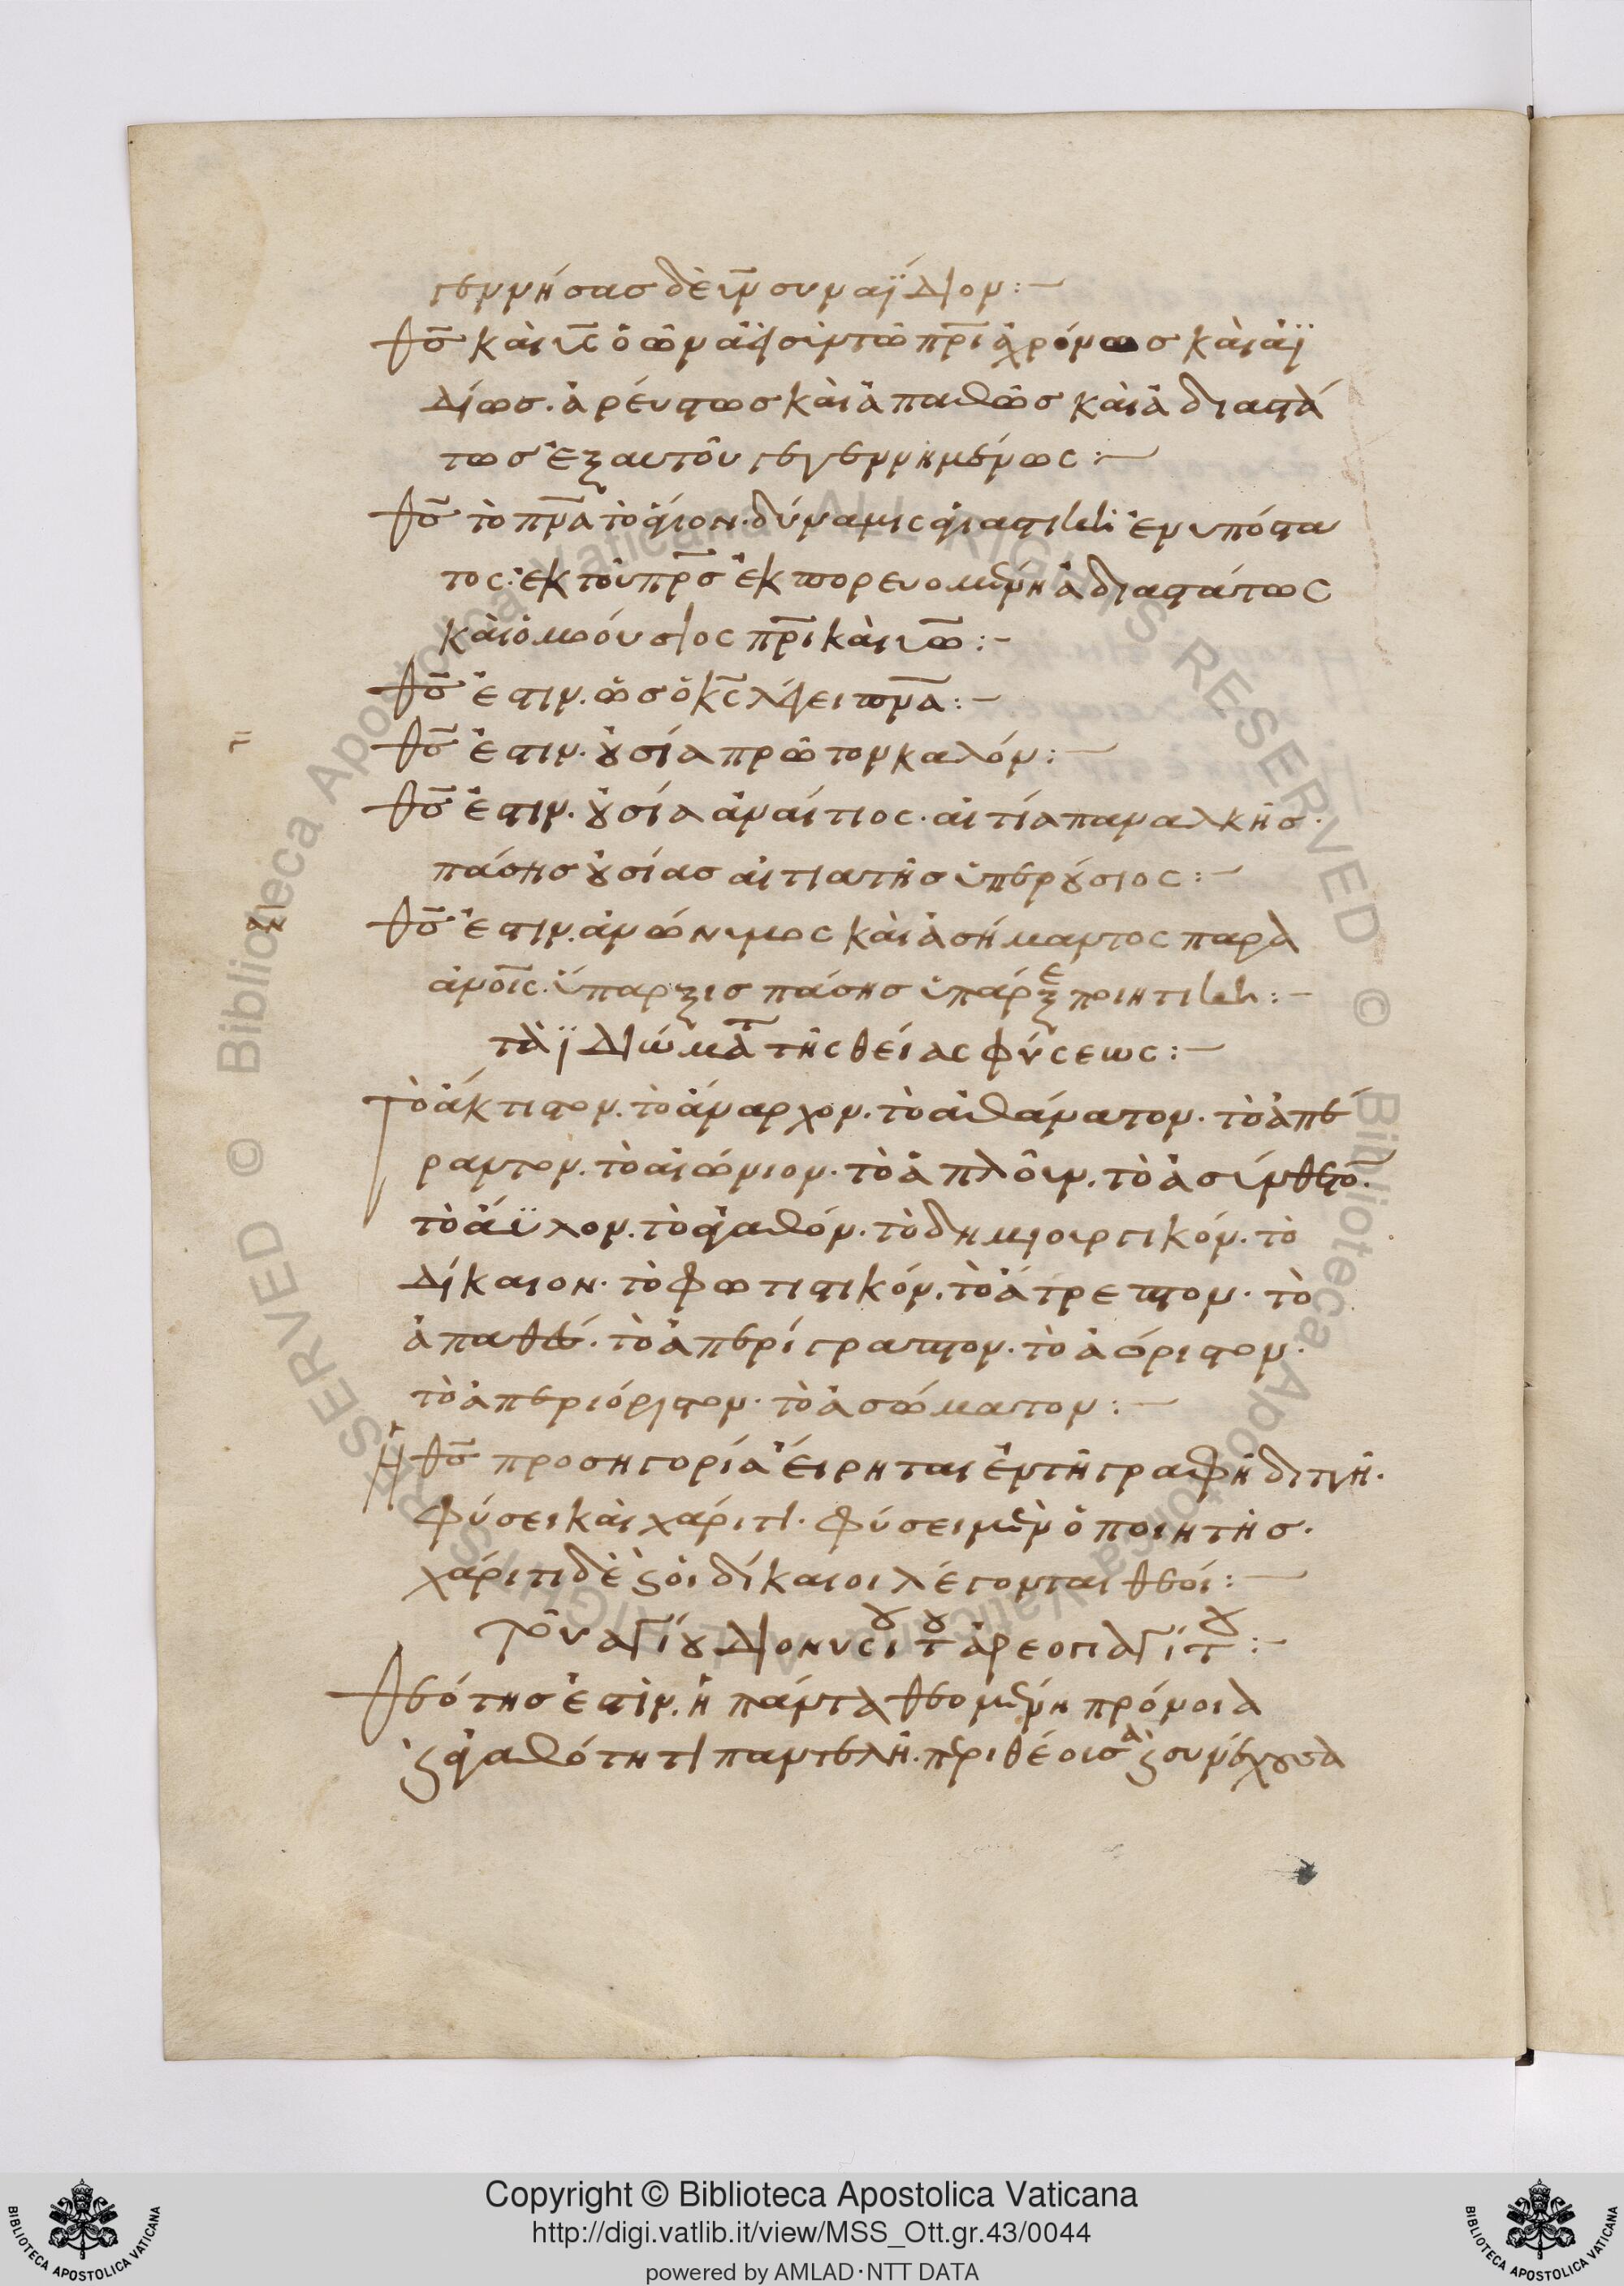 γεννήσας δὲ υ̅ν̅ συναΐδιον:–
θ̅ς̅ καὶ υ̅ς̅ ὁ ὢν ἀεὶ σὺν τῶ π̅ρ̅ι̅ ἀχρόνως καὶ ἀϊ
δίως. ἀρεύστως καὶ ἀπαθῶς καὶ ἀδιαστά
τως ἐξ αυτοῦ γεγεννημένως:–
θ̅ς̅ τὸ π̅ν̅α̅ τὸ ἅγιον. δύναμις ἁγιαστικὴ ἐνυπόστα
τος. ἐκ τοῦ π̅ρ̅ς̅ ἐκπορευομένη ἀδιαστάτως
καὶ ὁμοούσιος π̅ρ̅ι̅ καὶ υ̅ω̅:–
θ̅ς̅ ἐστιν. ὡς ὁ κ̅ς̅ λέγει π̅ν̅α̅:–
θ̅ς̅ ἐστιν. οὐσία πρῶτον καλόν:–
θ̅ς̅ ἐστιν. οὐσία ἀναίτιος. αἰτία παναλκὴς.
πάσης οὐσίας αἰτιατῆς ὑπερούσιος:–
θ̅ς̅ ἐστιν. ἀνώνυμος καὶ ἀσήμαντος παρὰ
α̅ν̅ο̅ι̅ς̅. ὕπαρξις πάσης ὑπάρξε ποιητικὴ:–
τὰ ϊδιώμα̅τ̅ τῆς θείας φύσεως:–
Τὸ ἄκτιστον. τὸ ἄναρχον. τὸ ἀθάνατον. τὸ ἀπέ
ραντον. τὸ αἰώνιον. τὸ ἁπλοῦν. τὸ ἀσύνθετο̅.
τὸ ἄϋλον. τὸ ἀγαθόν. τὸ δημιουργικόν. τὸ
δίκαιον. τὸ φωτιστικόν. τὸ ἄτρεπτον. τὸ
ἀπαθὲς. τὸ ἀπερίγραπτον. τὸ ἀόριστον.
τὸ ἀπεριόριστον. τὸ ἀσώματον:–
Ἡ θ̅ς̅ προσηγορία εἴρηται ἐν τῆ γραφῆ διττὴ.
φύσει καὶ χάριτι. φύσει μὲν ὁ ποιητὴς.
χάριτι δὲ ϗ οἱ δίκαιοι λέγονται θεοί:–
Τοῦ ἁγίου Διονυσίου τοῦ ἀρεοπαγίτου:–
Θεότης ἐστὶν. ἡ πάντα θεομένη πρόνοια
ϗ ἀγαθότητι παντελῆ. περιθέουσα ϗ συνέχουσα
Copyright © Biblioteca Apostolica Vaticana
http://digi.vatlib.it/view/MSS_Ott.gr.43/0044
powered by AMLAD·NTT DATA